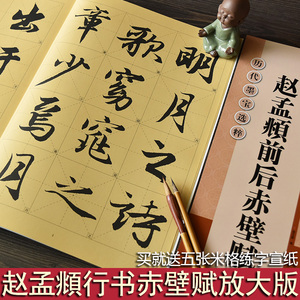 明月之詩
歌窈窕之
章少焉月
出于
历代墨宝选粹
赵孟頫前后赤壁赋
买就送五张米格练字宣纸
赵孟頫行书赤壁赋放大版